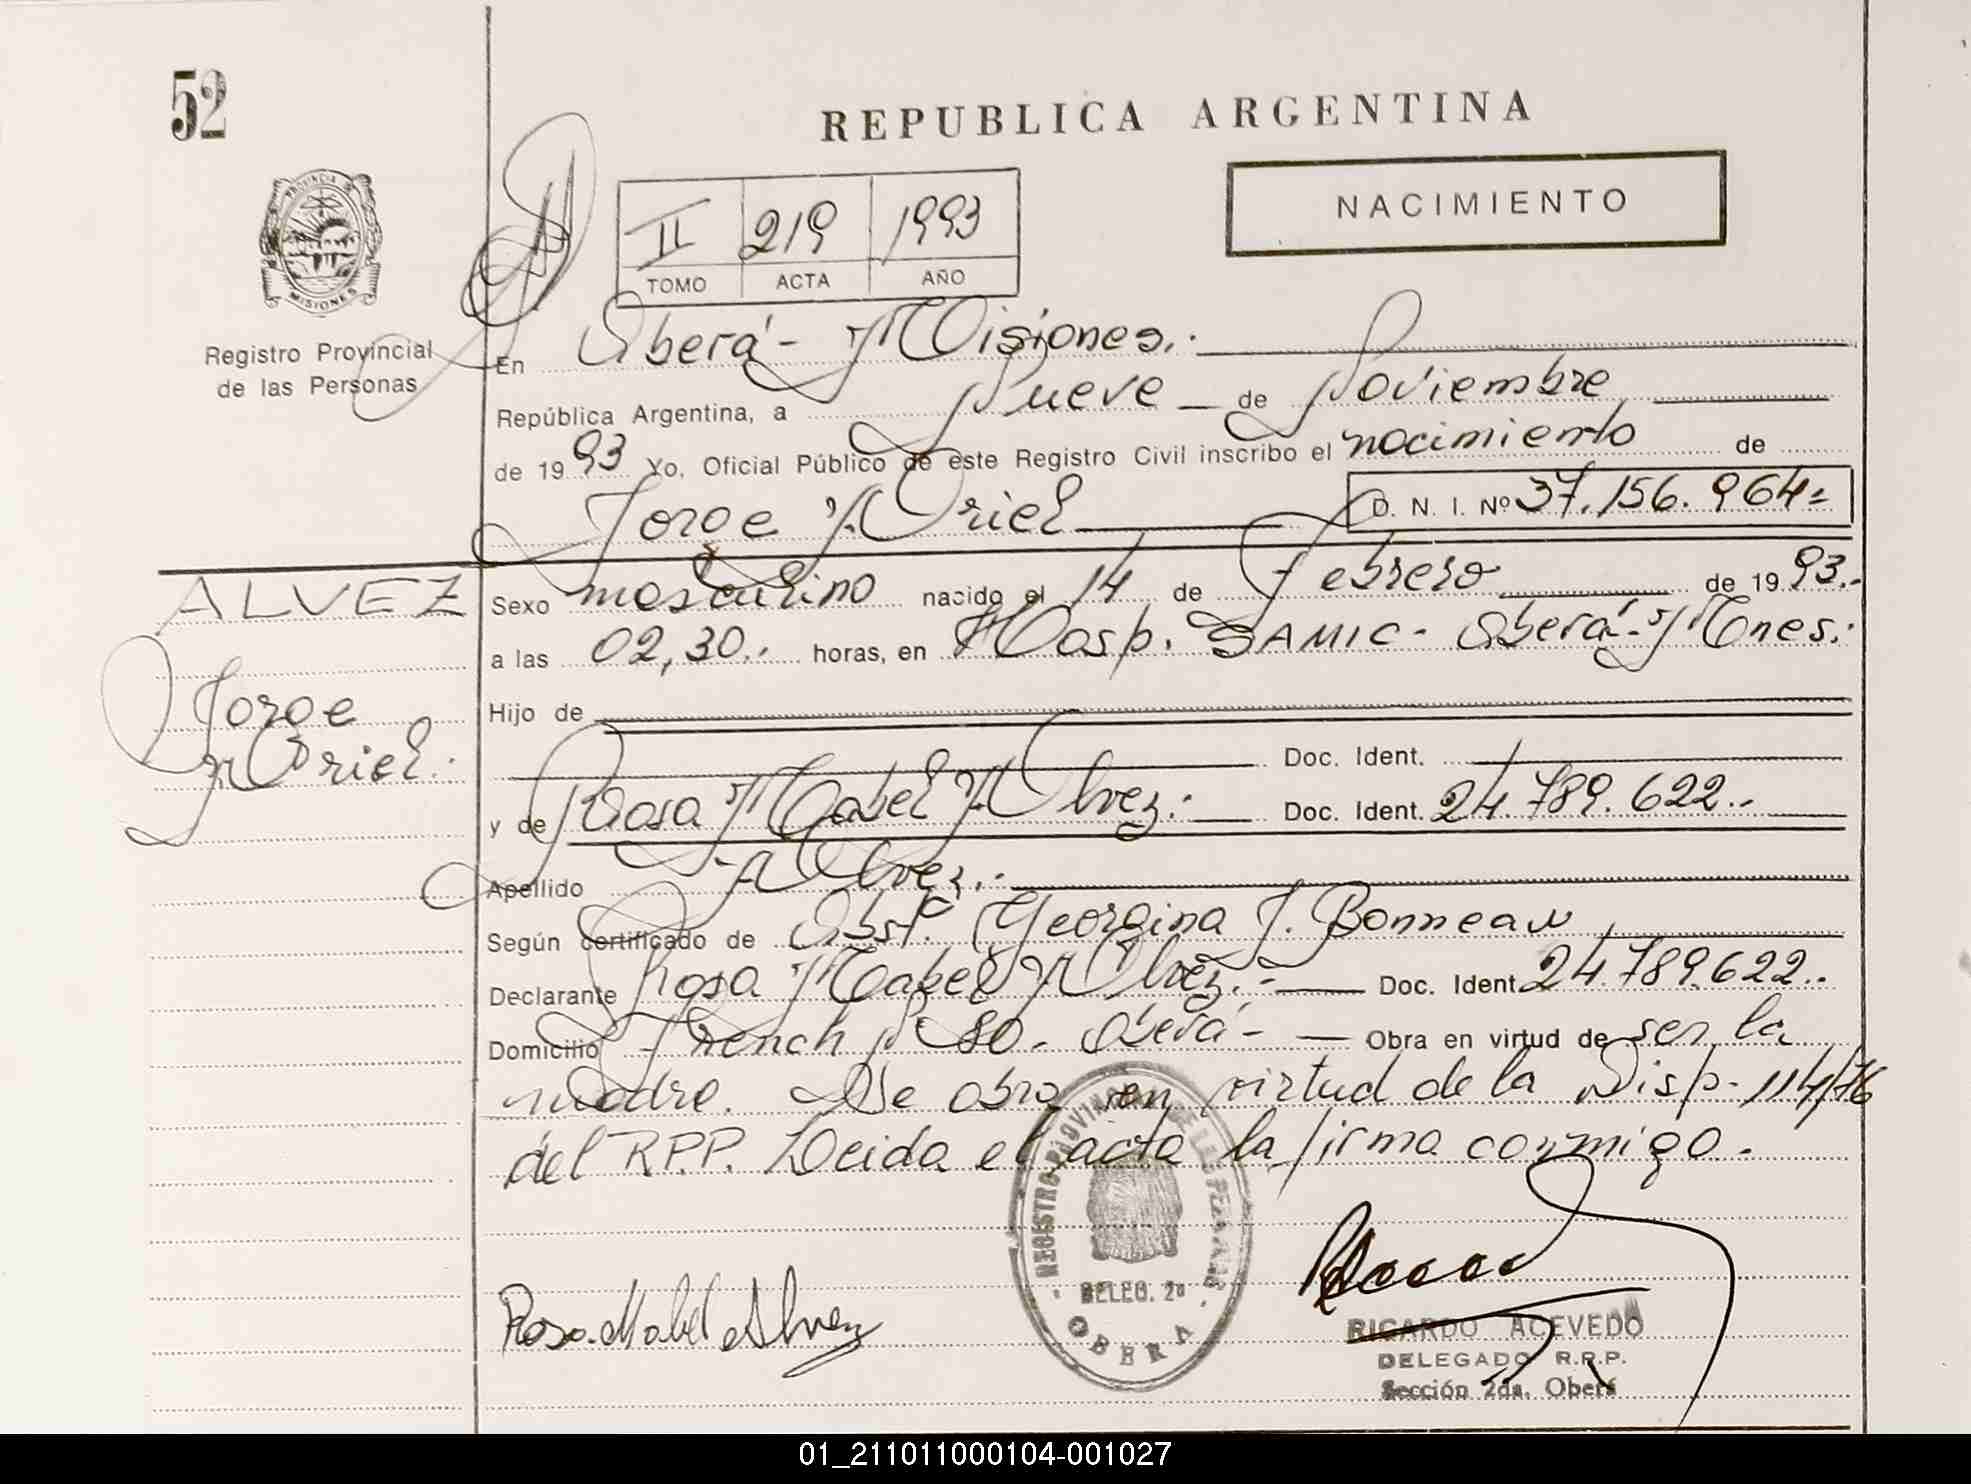 52
REPUBLICA ARGENTINA
NACIMIENTO
II 219 1993
TOMO ACTA AÑO
PROVINCIA DE
MISIONES
Registro Provincial
de las Personas
En Oberá - Misiones.-
República Argentina, a Nueve de Noviembre
de 1993 Yo, Oficial Público de este Registro Civil inscribo el nacimiento de
Jorge Ariel D. N. I. Nº 37.156.964=
ALVEZ
Jorge
Ariel.-
Sexo masculino nacido el 14 de Febrero de 1993.-
a las 02,30.. horas, en Hosp. SAMIC - Oberá - Mnes.-
Hijo de
Doc. Ident.
y de Rosa Mabel Alvez.- Doc. Ident. 24.789.622..
Apellido Alvez.-
Según certificado de Obst. Georgina J. Bonneau
Declarante Rosa Mabel Alvez.- Doc. Ident. 24.789.622..
Domicilio French Nº 80. Oberá - Obra en virtud de ser la
madre. Se obra en virtud de la Disp. 114/76
del R.P.P. Leida el acta la firma conmigo.
REGISTRO PROVINCIAL DE LAS PERSONAS
DELEG. 2ª
OBERA
Rosa Mabel Alvez
RICARDO ACEVEDO
DELEGADO R.P.P.
Sección 2da. Oberá
01_211011000104-001027